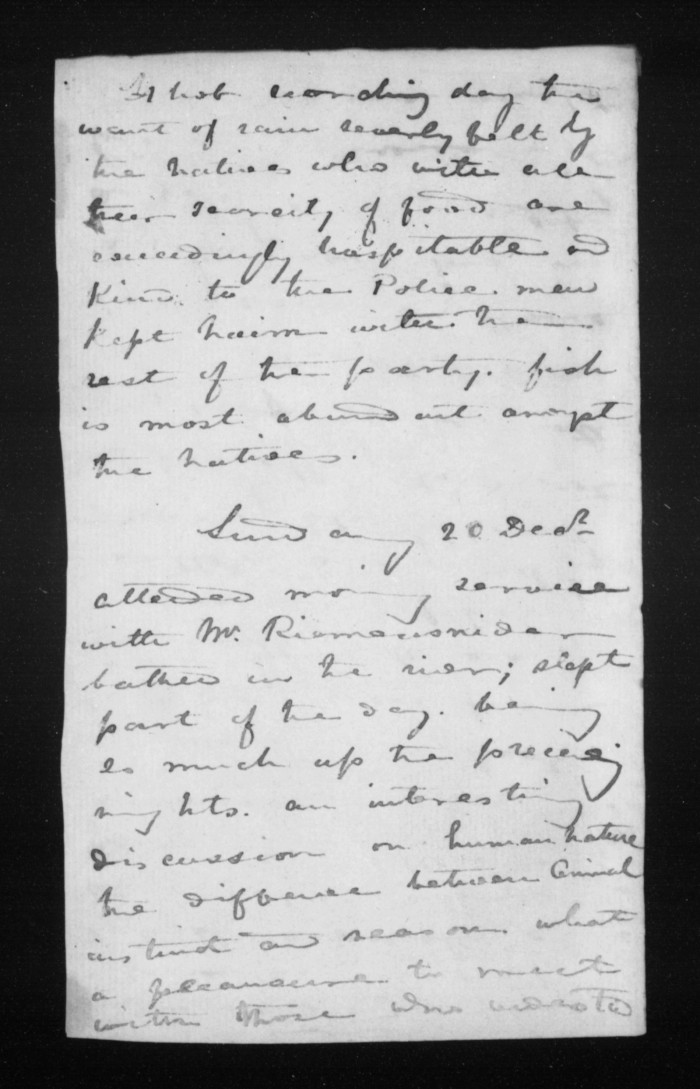 A hot scorching day the
want of rain severly felt by
the natives who with all
their scarcity of food are
exceedingly hospitable and
Kind to the Police men
kept with the
rest of the party. fish
is most abundant amgst
the natives.
Sunday 20 Decr
attended morning service
with Mr. Riemensnider
bathed in the river; slept
part of the day. being
so much up the preceeding
nights. an interesting
discussion on human nature
the difference between Animal
instinct and reason what
a pleasure to meet
with those who